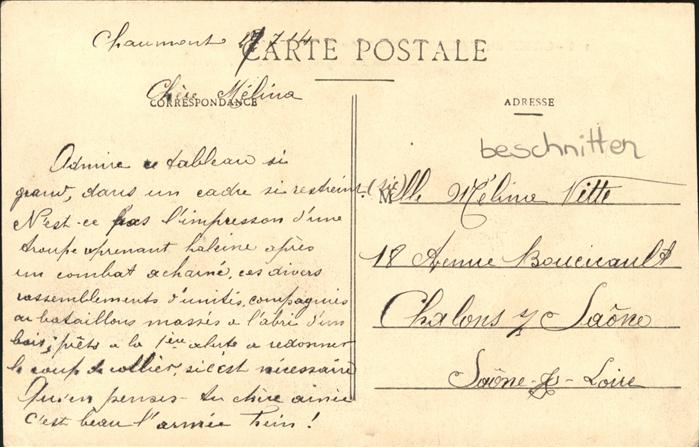 Chaumont 27.7.14
CARTE POSTALE
Chère Mélina
CORRESPONDANCE
Admire ce tableau si
grand, dans un cadre si restreint. (sic)
N'est-ce pas l'impression d'une
troupe aprenant haleine après
un combat acharné, ces divers
rassemblements d'unités, compagnies
ou bataillons massés à l'abri d'un
bois, prêts à la 1ère alerte a redonner
le coup de collier, si c'est nécessaire
Qu'en penses-tu chère ainée
c'est beau l'armée hein!
ADRESSE
beschnitten
Mlle Mélina Vitte
18 Avenue Boucicault
Chalons s/ Saône
Saône-&-Loire